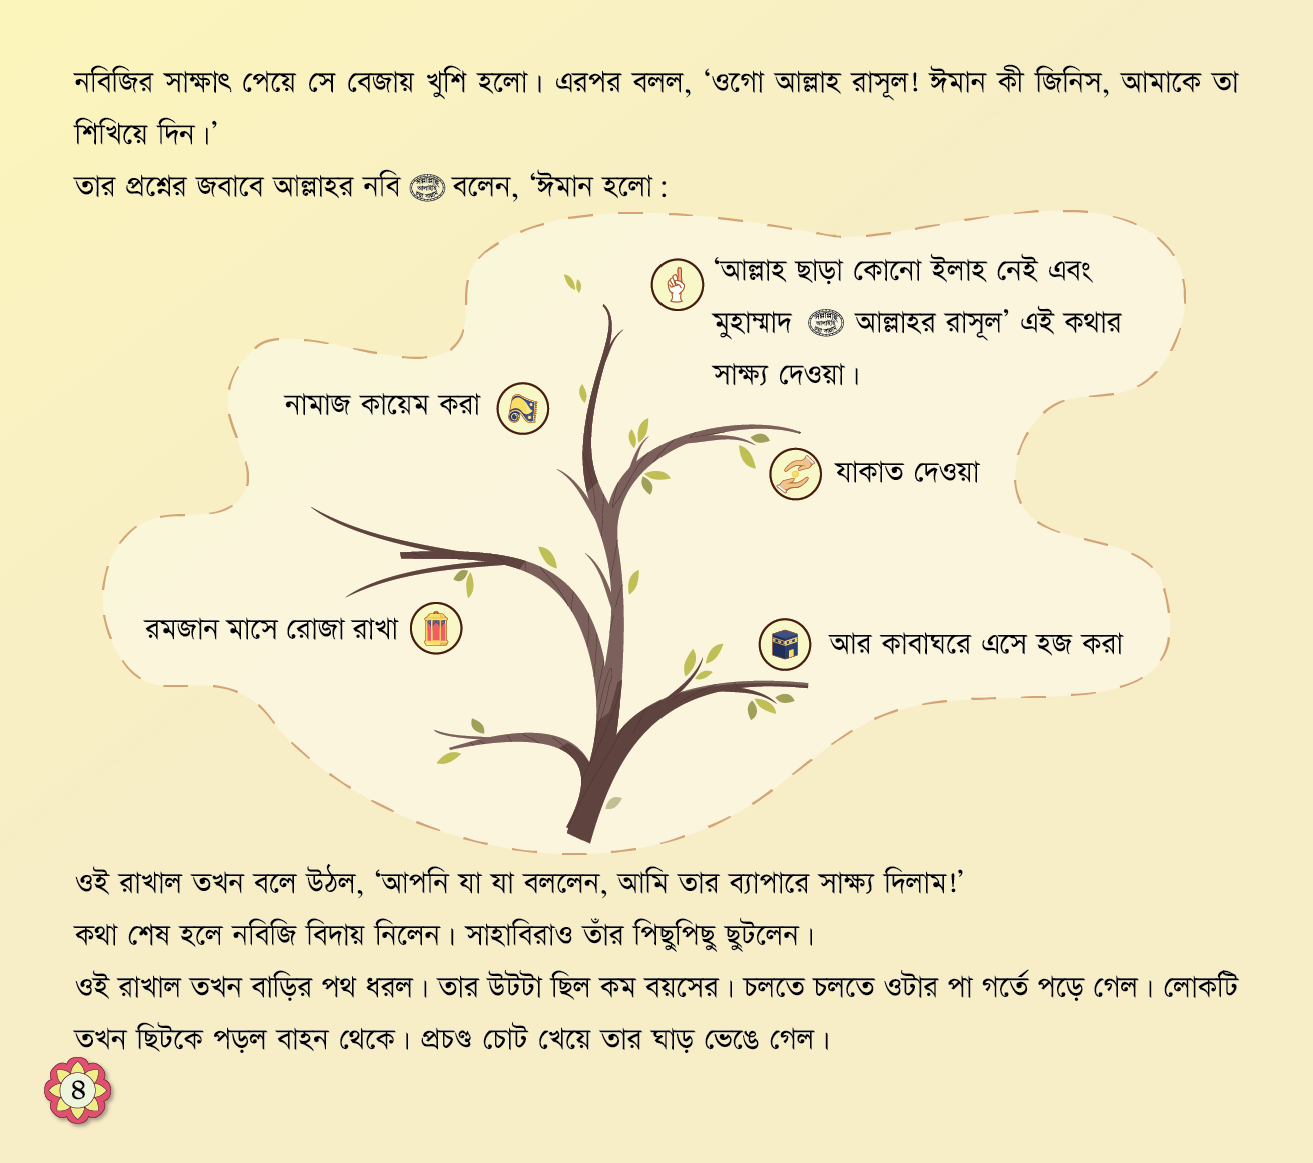 নবিজির সাক্ষাৎ পেয়ে সে বেজায় খুশি হলো। এরপর বলল, ‘ওগো আল্লাহ রাসূল! ঈমান কী জিনিস, আমাকে তা
শিখিয়ে দিন।’
তার প্রশ্নের জবাবে আল্লাহর নবি বলেন, ‘ঈমান হলো :
‘আল্লাহ ছাড়া কোনো ইলাহ নেই এবং
মুহাম্মাদ আল্লাহর রাসূল’ এই কথার
সাক্ষ্য দেওয়া।
নামাজ কায়েম করা
যাকাত দেওয়া
রমজান মাসে রোজা রাখা
আর কাবাঘরে এসে হজ করা
ওই রাখাল তখন বলে উঠল, ‘আপনি যা যা বললেন, আমি তার ব্যাপারে সাক্ষ্য দিলাম!’
কথা শেষ হলে নবিজি বিদায় নিলেন। সাহাবিরাও তাঁর পিছুপিছু ছুটলেন।
ওই রাখাল তখন বাড়ির পথ ধরল। তার উটটা ছিল কম বয়সের। চলতে চলতে ওটার পা গর্তে পড়ে গেল। লোকটি
তখন ছিটকে পড়ল বাহন থেকে। প্রচণ্ড চোট খেয়ে তার ঘাড় ভেঙে গেল।
8